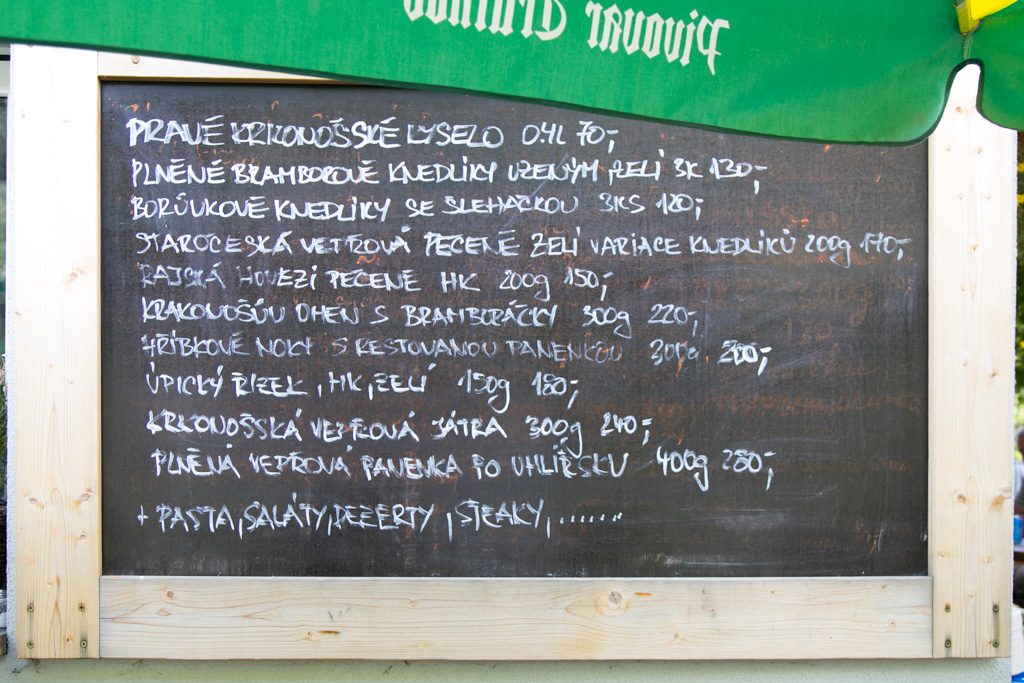 Pivovar
PRAVÉ KRKONOŠSKÉ KYSELO 0.4L 70,-
PLNĚNÉ BRAMBOROVÉ KNEDLÍKY UZENÝM, ZELÍ 3K 130,-
BORŮVKOVÉ KNEDLÍKY SE ŠLEHAČKOU 3KS 120,-
STAROČESKÁ VEPŘOVÁ PEČENĚ ZELÍ VARIACE KNEDLÍKŮ 200g 170,-
RAJSKÁ HOVĚZÍ PEČENĚ HK 200g 150,-
KRAKONOŠŮV OHEŇ S BRAMBORÁČKY 300g 220,-
HŘÍBKOVÉ NOKY S RESTOVANOU PANENKOU 300g
ÚPICKÝ ŘÍZEK, HK, ZELÍ 150g 180,-
KRKONOŠSKÁ VEPŘOVÁ JÁTRA 300g 240,-
PLNĚNÁ VEPŘOVÁ PANENKA PO UHLÍŘSKU 400g 280,-
+ PASTA, SALÁTY, DEZERTY, STEAKY, ......